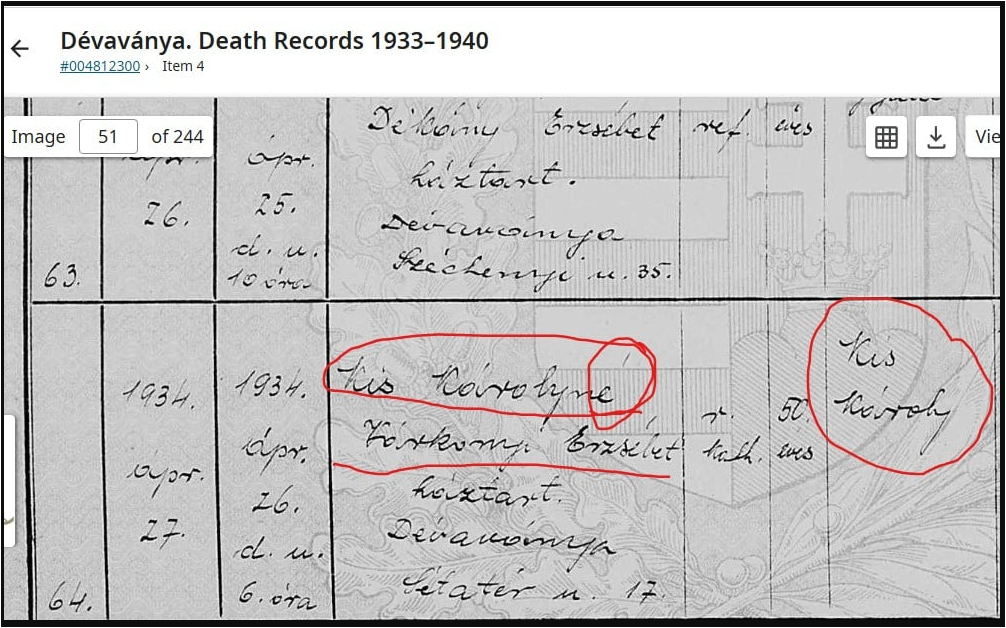 Dévaványa. Death Records 1933–1940
#004812300 › Item 4
Image 51 of 244
Vie
Dékány Erzsébet ref. éves
ápr.
háztart.
26. 25.
Dévaványa
d. u.
Széchenyi u. 35.
63. 10 óra
Kis
Kis Károlyné
1934. 1934. r. 50 Károly
Várkonyi Erzsébet kath. éves
ápr. ápr.
háztart.
26.
27. Dévaványa
d. u.
64. 6. óra Sétatér u. 17.